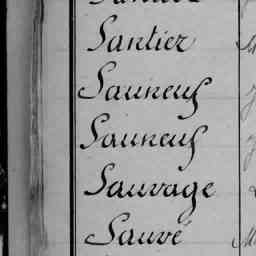 Santier
Sauneuf
Sauneuf
Sauvage
Sauvé